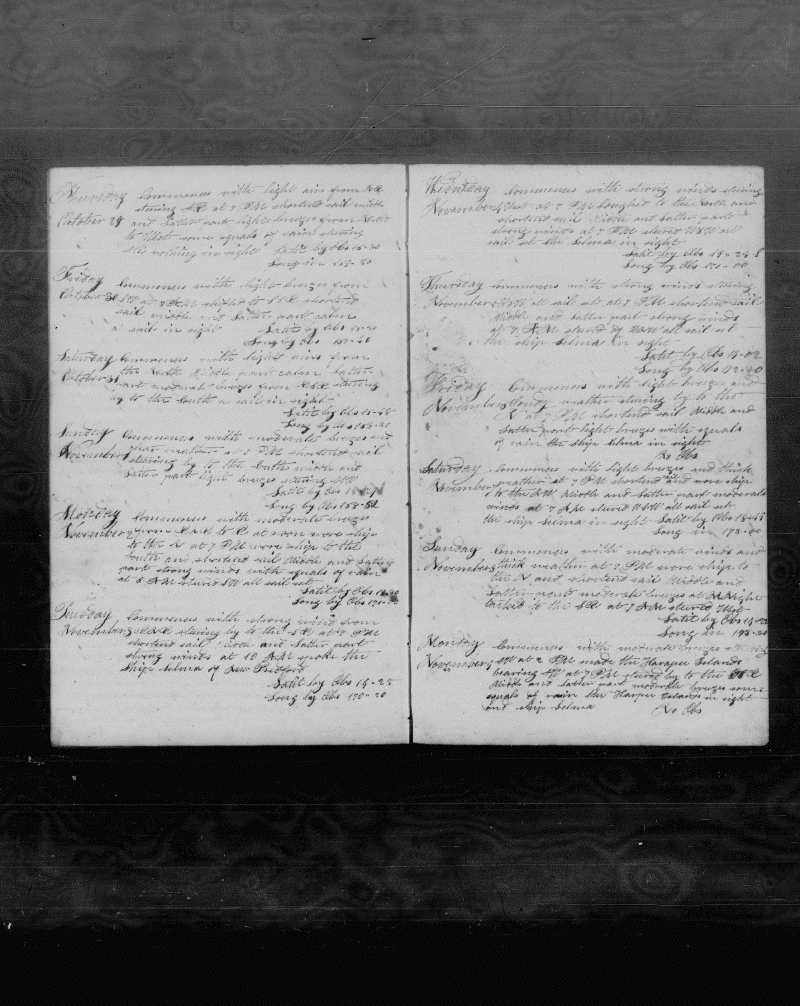 Thursday Commences with light airs from NE
stering SE at 7 PM shortend sail middle
October 29 and Latter part light breezes from North
to West some squals of rain stering
SE nothing in sight Latit by Obs
Long in 158-50
Friday Commences with light breezes from
October 30 SW at 7 PM shifted to SSE shortend
sail middle and Latter part calm
a sail in sight Latit by Obs
Long by Obs 158-40
Saturday Commences with light airs from
October 31 the North Middle part calm Latter
part moderat breezes from NNE stering
by to the South a sail in sight
Latit by Obs 15-48
Long by Obs 158-20
Sunday Commences with moderate breezes and
November 1 at 7 PM shortend sail
stering by to the South middle and
Latter part light breezes stering SSW
Latit by Obs
Long by Obs 158-52
Monday Commences with moderate breezes
November 2 from NNE to E at noon wore ship
to the N at 7 PM wore ship to the
South and shortend sail Middle and Latter
part strong winds with squals of rain
at 6 AM sterd SW all sail set
Latit by Obs
Long by Obs
Tuesday Commences with strong winds from
November 3 ENE stering by to the SE at 7 PM
shortend sail Middle and Latter part
strong winds at 10 AM spoke the
Ship Selma of New Bedford
Latit by Obs 14-25
Long by Obs 170-20
Wensday Commences with strong winds stering
November 4 West at 7 PM hought to the North and
shortend sail Middle and Latter part
strong winds at 7 AM sterd WSW all
sail set the Selma in sight
Latit by Obs 14-24 S
Long by Obs 171-00
Thursday Commences with strong winds stering
November 5 WSW all sail set at 7 PM shortend sail
Middle and Latter part strong winds
at 7 AM sterd by WSW all sail set
the ship Selma in sight
Latit by Obs 14-02
Long by Obs 172-30
Friday Commences with light breezes and
November 6 cloudy weather stering by to the
N at 7 PM shortend sail Middle and
Latter part light breezes with squals
of rain the ship Selma in sight
No Obs
Saturday Commences with light breezes and thick
November 7 weather at 7 PM shortend sail and wore ship
to the NW Middle and Latter part moderate
winds at 7 AM sterd WSW all sail set
the ship Selma in sight Latit by Obs 13-48
Long in 173-00
Sunday Commences with moderate winds and
November 8 thick weather at 7 PM wore ship to
the N and shortend sail Middle and
Latter part moderate breezes at MidNight
tacked to the SE at 7 AM sterd West
Latit by Obs 14-22
Long in 173-30
Monday Commences with moderate breezes
November 9 SW at 2 PM made the Harapee Islands
bearing SW at 7 PM sterd by to the
Middle and Latter part moderate breezes some
squals of rain the Harpee Islands in sight
and ship Selma No Obs